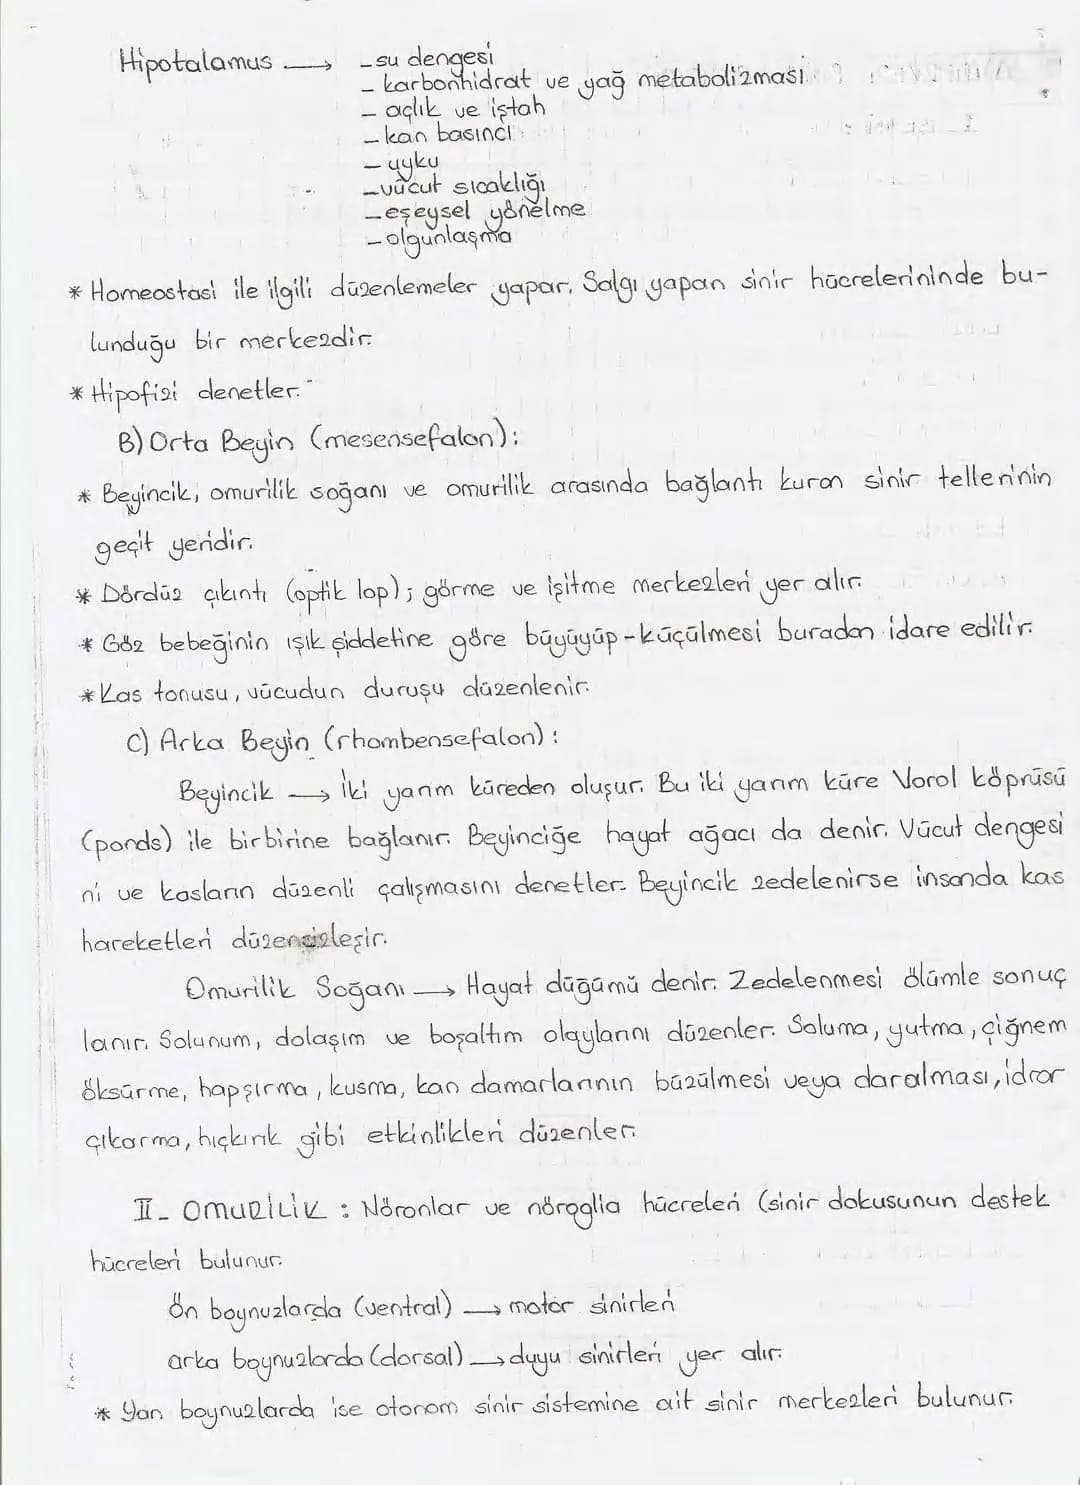 Hipotalamus → - su dengesi
- karbonhidrat ve yağ metabolizması
- açlık ve iştah
- kan basıncı
- uyku
- vücut sıcaklığı
- eşeysel yönelme
- olgunlaşma
* Homeostasi ile ilgili düzenlemeler yapar. Salgı yapan sinir hücrelerininde bu-
lunduğu bir merkezdir.
* Hipofizi denetler.
B) Orta Beyin (mesensefalon):
* Beyincik, omurilik soğanı ve omurilik arasında bağlantı kuran sinir tellerinin
geçit yeridir.
* Dördüz çıkıntı (optik lop); görme ve işitme merkezleri yer alır.
* Göz bebeğinin ışık şiddetine göre büyüyüp-küçülmesi buradan idare edilir.
* Kas tonusu, vücudun duruşu düzenlenir.
C) Arka Beyin (rhombensefalon):
Beyincik → İki yarım küreden oluşur. Bu iki yarım küre Varol köprüsü
(ponds) ile birbirine bağlanır. Beyinciğe hayat ağacı da denir. Vücut dengesi
ni ve kasların düzenli çalışmasını denetler. Beyincik zedelenirse insanda kas
hareketleri düzensizleşir.
Omurilik Soğanı → Hayat düğümü denir. Zedelenmesi ölümle sonuç
lanır. Solunum, dolaşım ve boşaltım olaylarını düzenler. Soluma, yutma, çiğnem
öksürme, hapşırma, kusma, kan damarlarının büzülmesi veya daralması, idrar
çıkarma, hıçkırık gibi etkinlikleri düzenler.
II- OMURİLİK : Nöronlar ve nöroglia hücreleri (sinir dokusunun destek
hücreleri bulunur.
Ön boynuzlarda (ventral) → motor sinirleri
arka boynuzlarda (dorsal) → duyu sinirleri yer alır.
* Yan boynuzlarda ise otonom sinir sistemine ait sinir merkezleri bulunur.